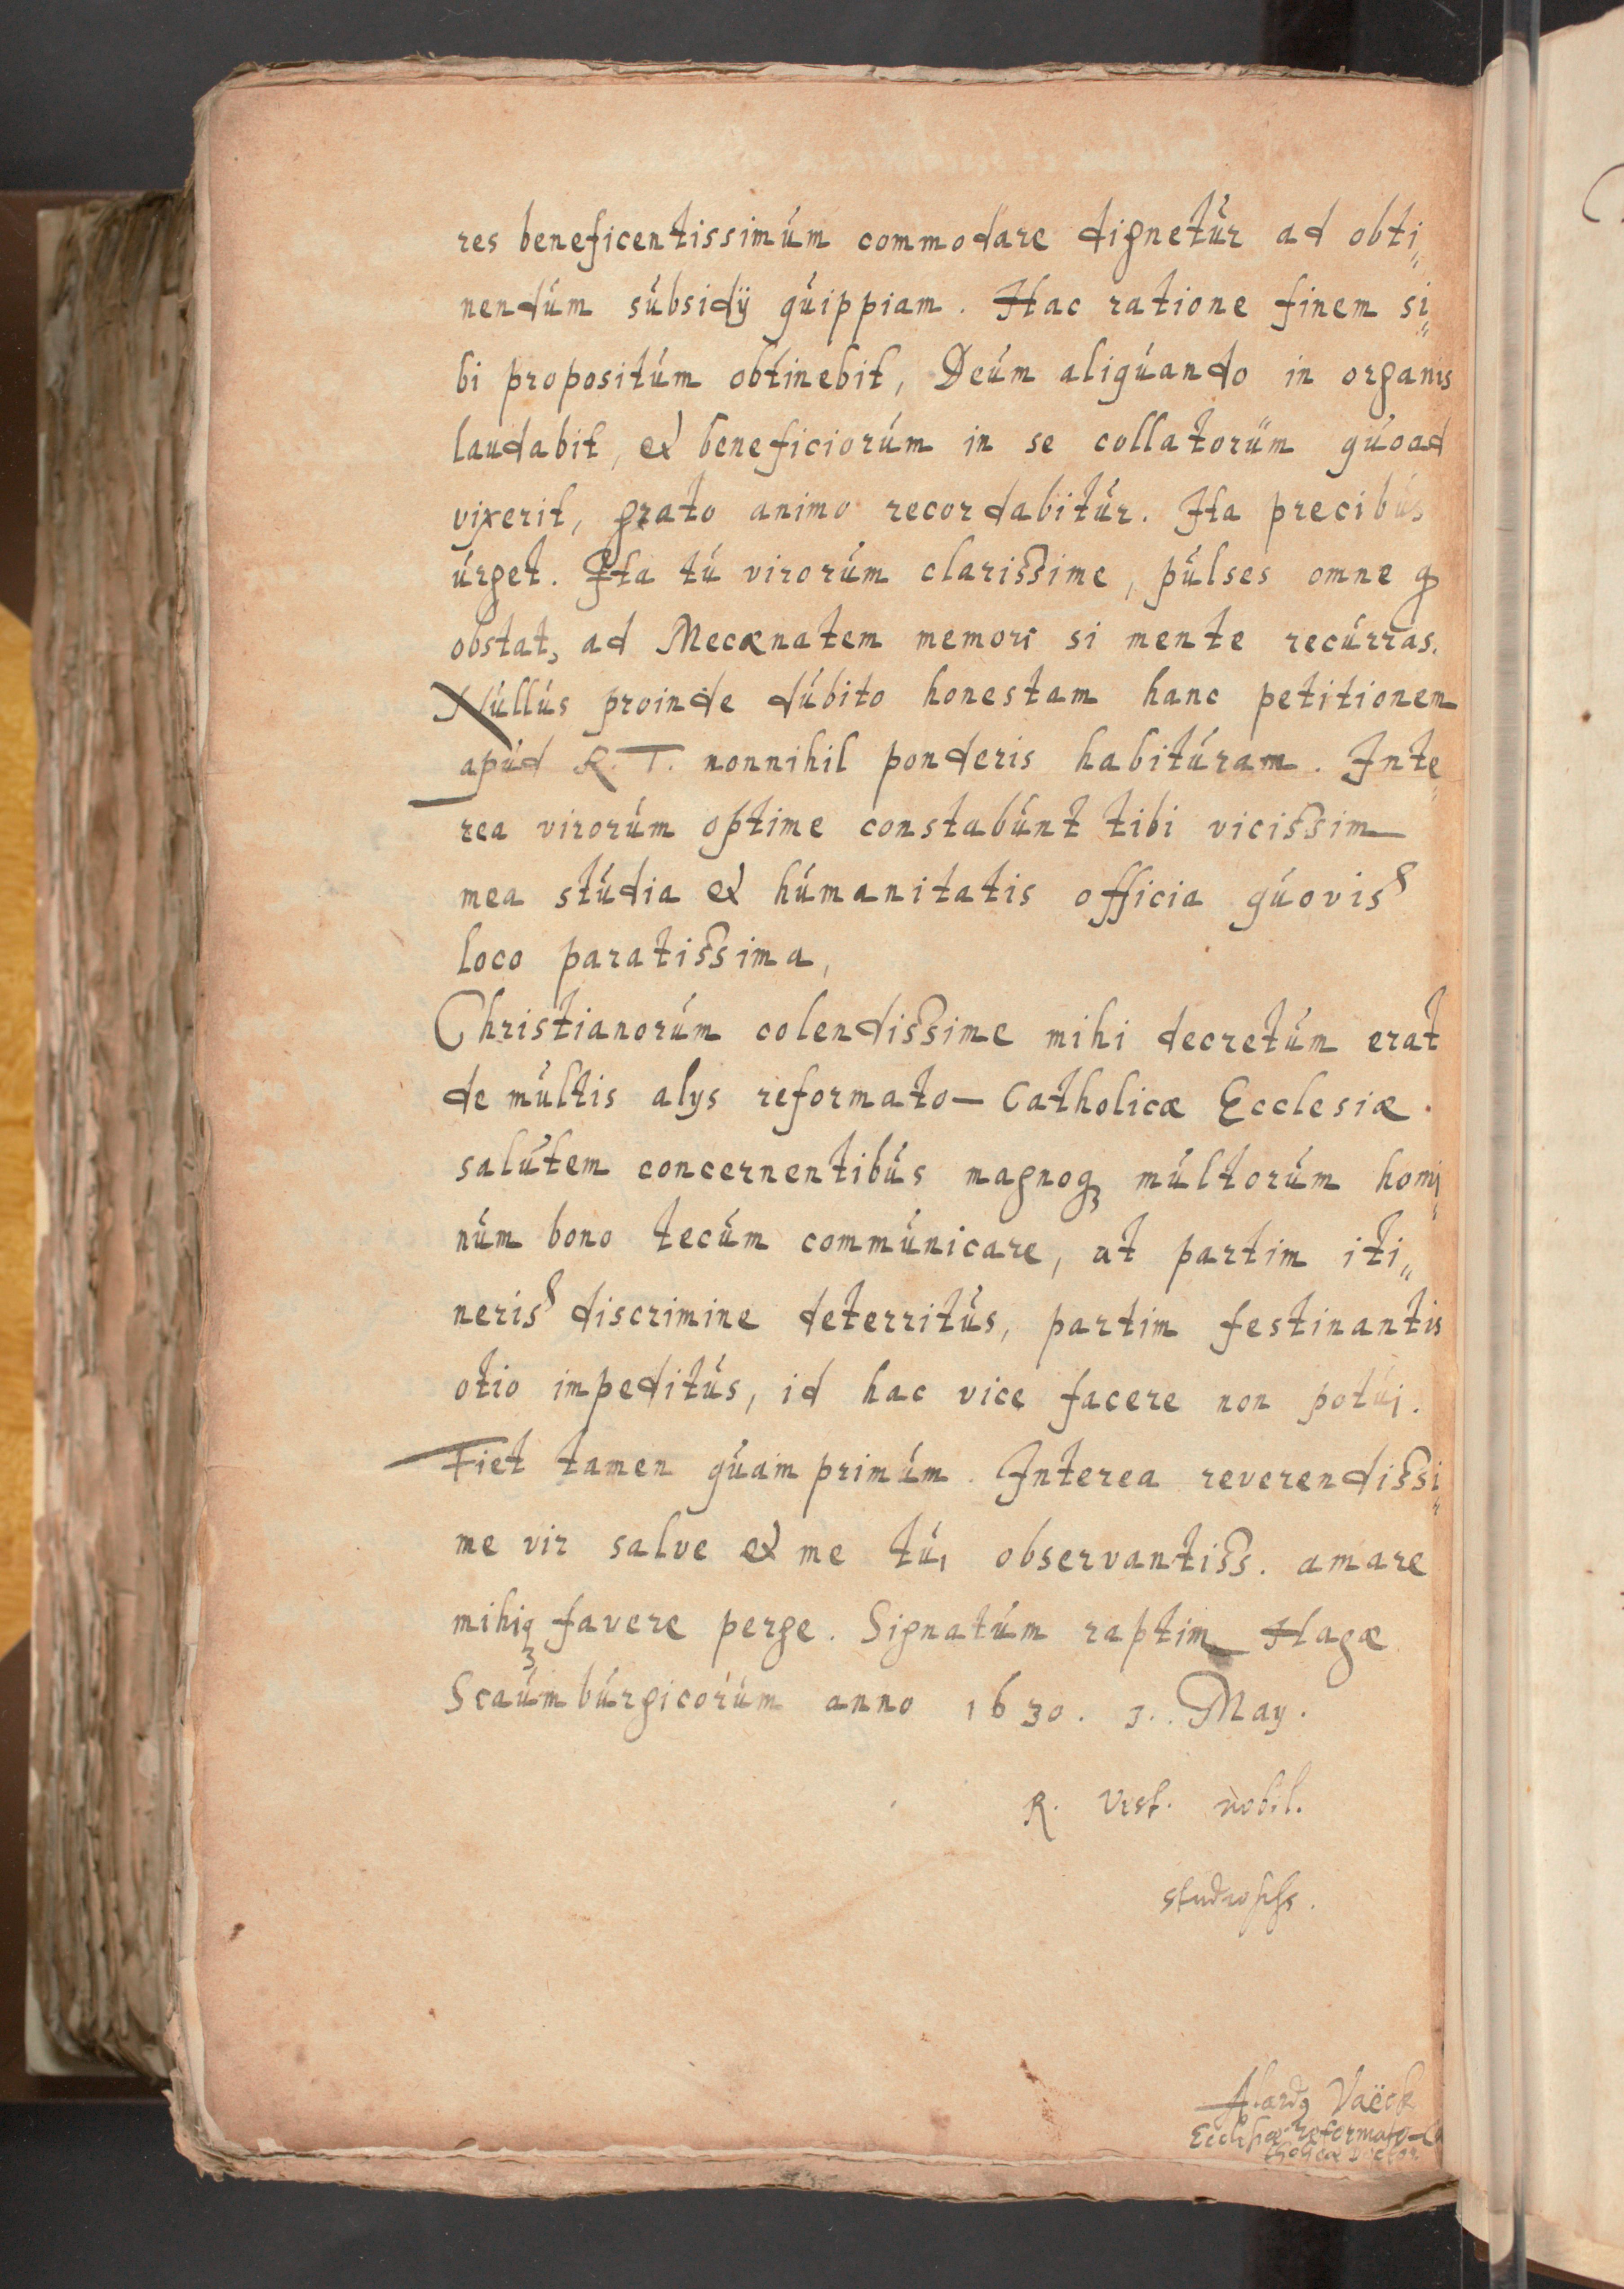 res beneficentissimúm commodare dignetúr ad obti„
nendúm súbsidÿ qúippiam. Hac ratione finem si„
bi propositúm obtinebit, Deúm aliqúando in organis
laudabit, & beneficiorúm in se collatorúm qúoad
vixerit, grato animo recordabitúr. Ita precibús
úrget. Ita tú virorúm clarissime, púlses omne q
obstat, ad Mecænatem memori si mente recúrras.
Núllús proinde dúbito honestam hanc petitionem
apúd R. T. nonnihil ponderis habitúram. Inte„
rea virorúm optime constabúnt tibi vicissim
mea stúdia & húmanitatis officia qúovis
loco paratissima,
Christianorúm colendissime mihi decretúm erat
de múltis alys reformato—Catholicæ Ecclesiæ
salútem concernentibús magnoq₃ múltorúm homi„
núm bono tecúm commúnicare, at partim iti„
neris discrimine deterritús, partim festinantis
otio impeditús, id hac vice facere non potúi.
Fiet tamen qúam primúm. Interea reverendissi„
me vir salve & me túi observantiss. amare
mihiq₃ favere perge. Signatúm raptim Hagæ
Scaúmbúrgicorúm anno 1630. 3. May.
R. Vest. nobil.
studiosiss.
Alard9 Vaëck
Ecclesiæ reformato-Ca
tholicæ Doctor